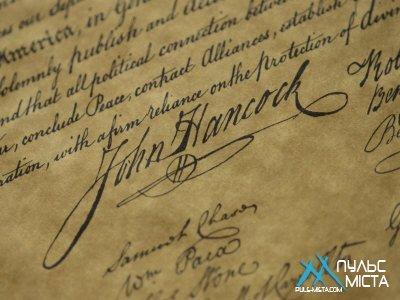 America, in Gen
olemnly publish and
nd that all political connection between
conclude Peace, contract Alliances, establish
ration, with a firm reliance on the protection of divin
John Hancock
Rob
Ben
Samuel Chase
Wm Paca
Stone
ПУЛЬС
МІСТА
PULS-MISTA.COM